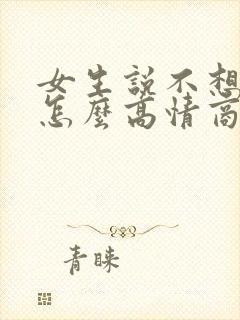 女生說不想
怎麼高情商
青睞